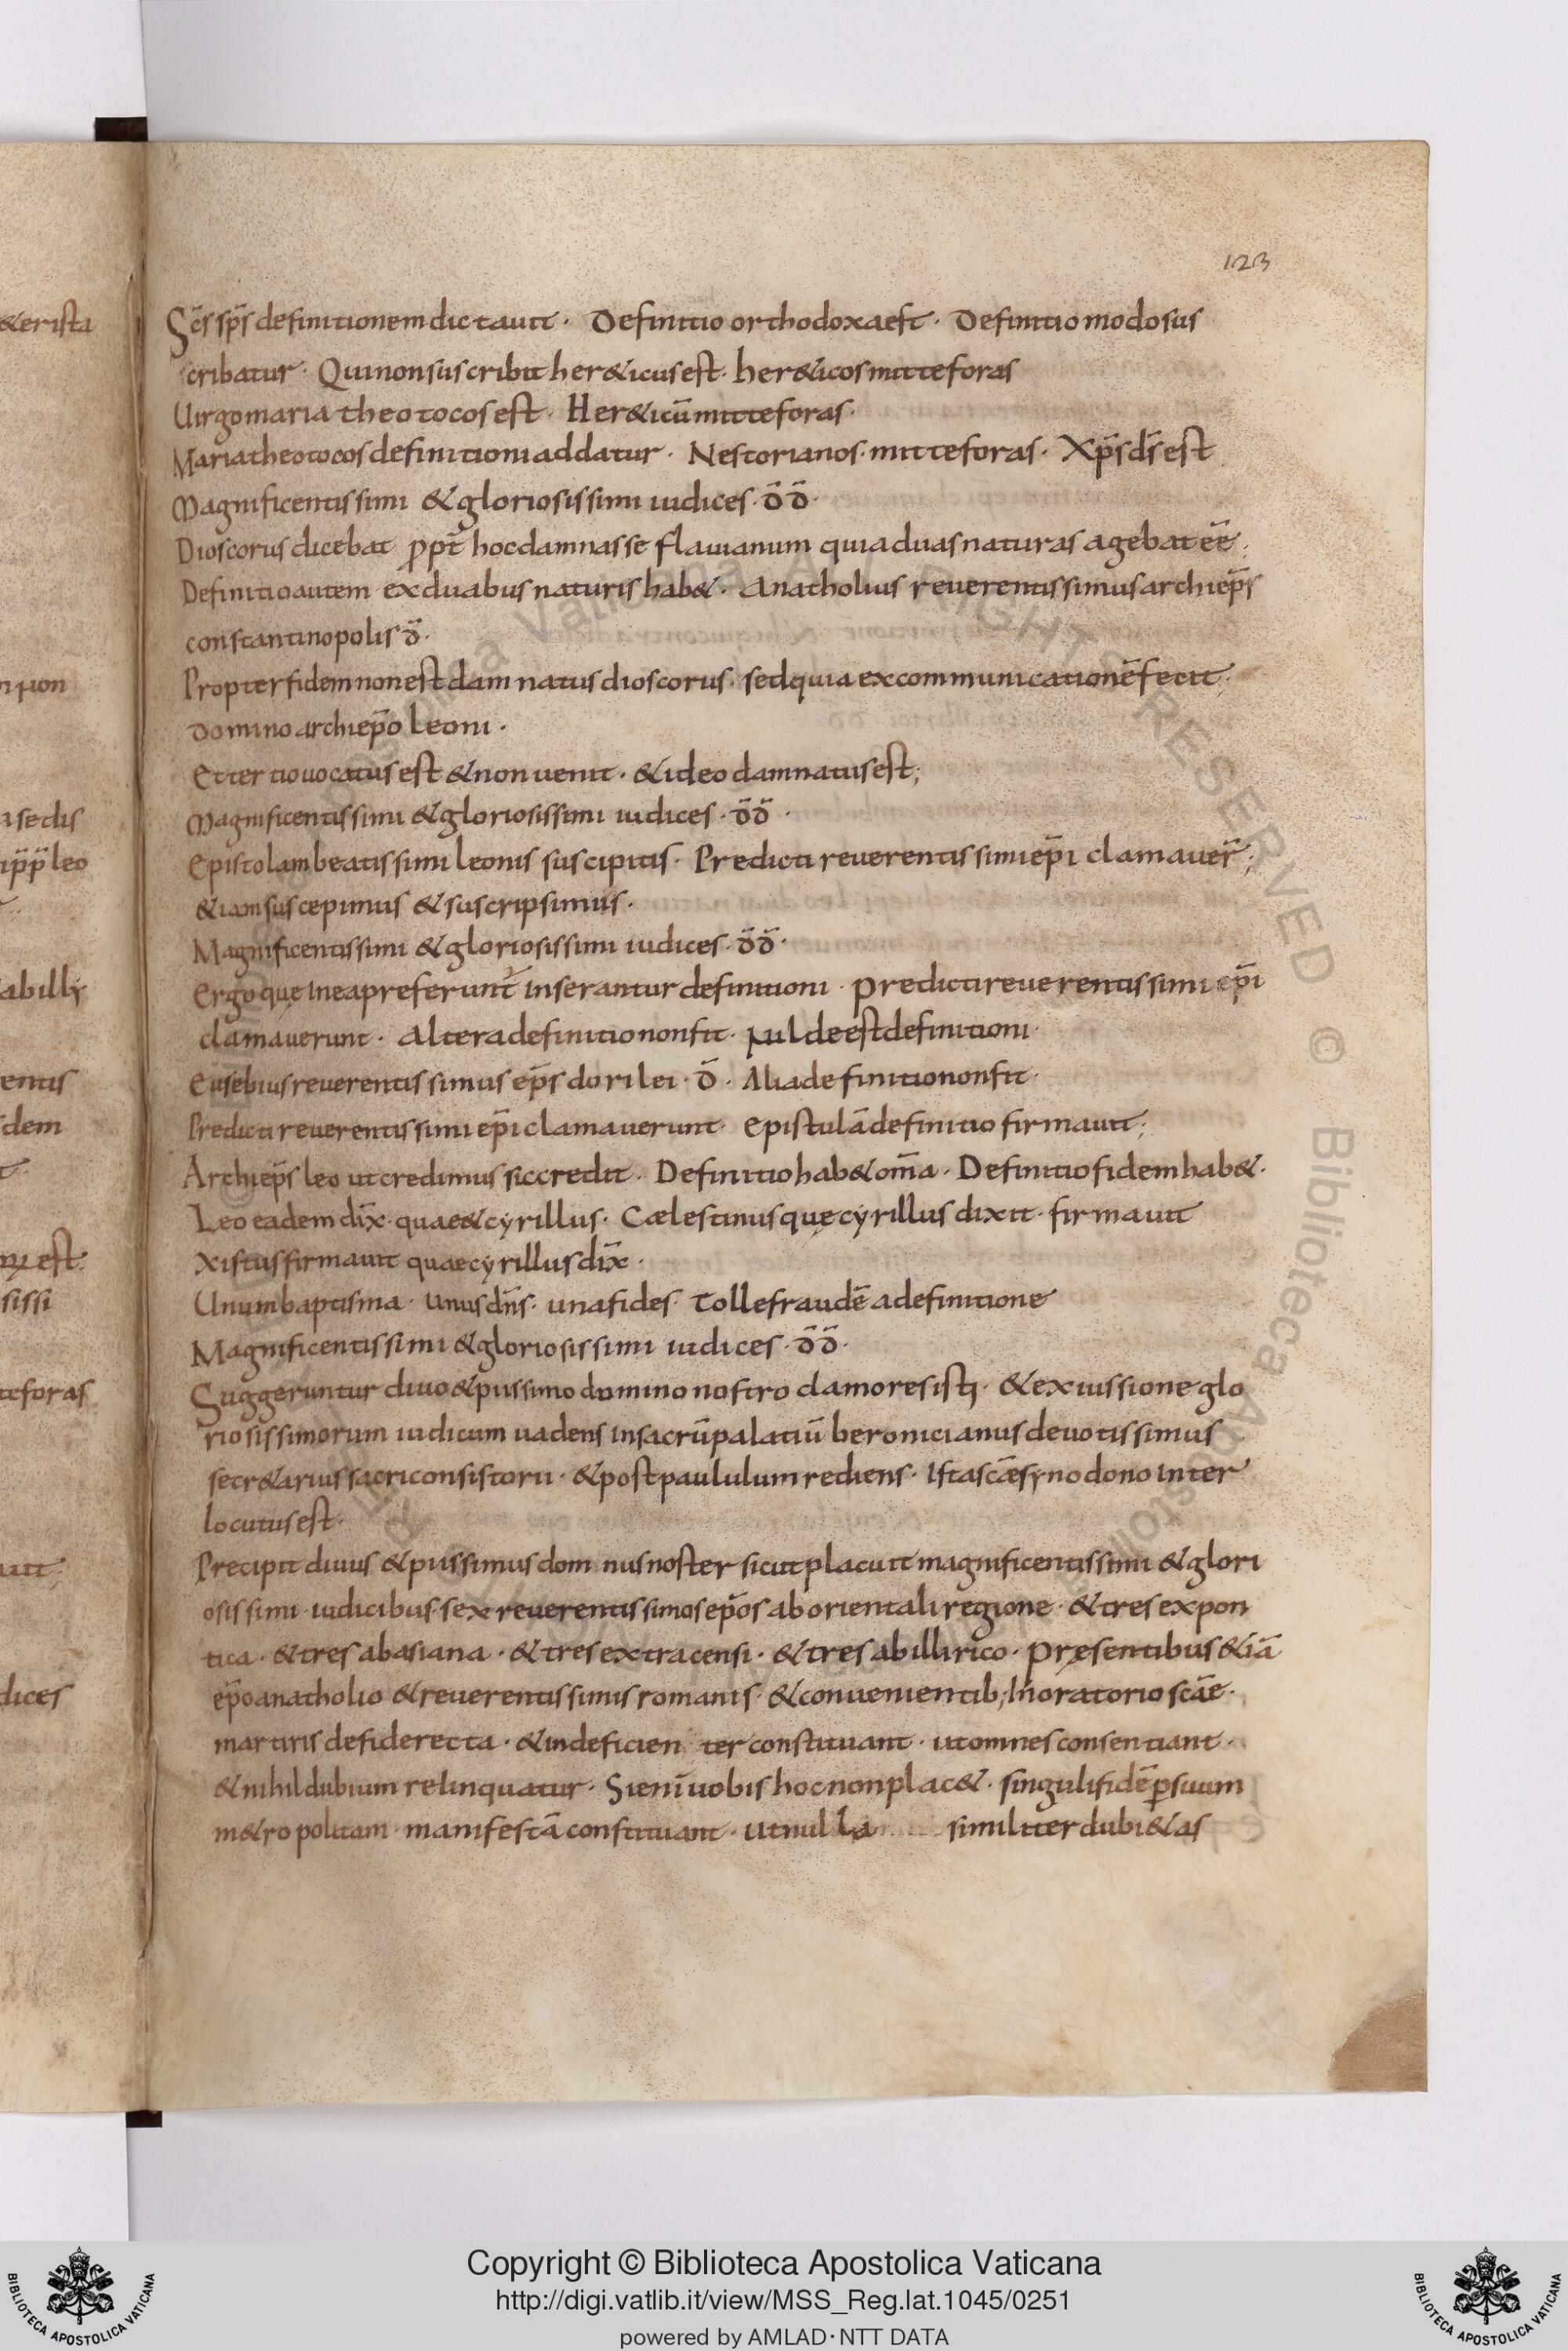 123
Sc̄s sp̄s definitionem dictauit · Definitio orthodoxa est · Definitio modo sus
cribatur · Qui non suscribit her&icus est · her&icos mitte foras
Uirgo maria theotocos est · Her&icū mitte foras ·
Maria theotocos definitioni addatur · Nestorianos · mitte foras · Xp̄s d̄s est
Magnificentissimi & gloriosissimi iudices · d̄d̄ ·
Dioscorus dicebat ppt̄ hoc damnasse flauianum quia duas naturas agebat eē ·
Definitio autem ex duabus naturis hab& · Anatholius reuerentissimus archiep̄s
constantinopolis d̄ ·
Propter fidem non est damnatus dioscorus · sed quia excommunicationē fecit ·
domino archiep̄o leoni ·
Et tertio uocatus est & non uenit · & ideo damnatus est ;
Magnificentissimi & gloriosissimi iudices · d̄d̄ ·
Epistolam beatissimi leonis suscipitis · Predicti reuerentissimi ep̄i clamauer̄ ;
&iam suscepimus & suscripsimus ·
Magnificentissimi & gloriosissimi iudices · d̄d̄ ·
Ergo quę in ea preferunt̄ inserantur definitioni · predicti reuerentissimi ep̄i
clamauerunt · Altera definitio non fit · Nil deest definitioni ·
Eusebius reuerentissimus ep̄s dorilei · d̄ · Alia definitio non fit ·
Predicti reuerentissimi ep̄i clamauerunt · Epistulā definitio firmauit ;
Archiep̄s leo ut credimus sic credit · Definitio hab& om̄a · Definitio fidem hab& ·
Leo eadem dix̄ · quae & cyrillus · Cælestinus quę cyrillus dixit · firmauit
Xistus firmauit quae cyrillus dix̄ ·
Unum baptisma · unus dn̄s · una fides · Tolle fraudē a definitione
Magnificentissimi & gloriosissimi iudices · d̄d̄ ·
Suggeruntur diuo & piissimo domino nostro clamores isti · & ex iussione glo
riosissimorum iudicum uadens in sacrū palatiū beronicianus deuotissimus
secr&arius sacri consistorii · & post paululum rediens · Ista scāe synodo no inter
locutus est ·
Precipit diuus & piissimus dom nus noster sicut placuit magnificentissimi & glori
osissimi · iudicibus · sex reuerentissimos ep̄os ab orientali regione · & tres ex pon
tica · & tres ab asiana · & tres ex tracensi · & tres ab illirico · pręsentibus &iā
ep̄o anatholio & reuerentissimis romanis · & conuenientib; in oratorio scāe ·
martiris de fide recta · & indeficien ter constituant · ut omnes consentiant ·
& nihil dubium relinquatur · Si enī uobis hoc non plac& · singuli fidē p suum
m&ropolitam · manifestā constituant · ut nulla similiter dubi&as
&erista
a sedis
leo
abilly
entis
dem
est
sissi
teforas
dices
Copyright © Biblioteca Apostolica Vaticana
http://digi.vatlib.it/view/MSS_Reg.lat.1045/0251
powered by AMLAD·NTT DATA
BIBLIOTECA APOSTOLICA VATICANA
BIBLIOTECA APOSTOLICA VATICANA